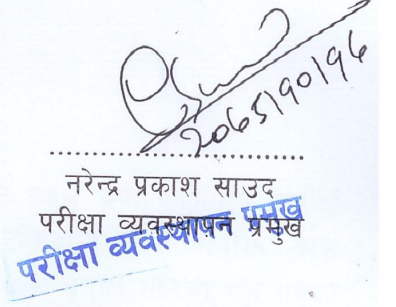 2065/10/16
नरेन्द्र प्रकाश साउद
परीक्षा व्यवस्थापन प्रमुख
परीक्षा व्यवस्थापन प्रमुख